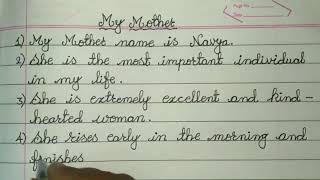 My Mother
1) My Mother name is Navya.
2) She is the most important individual
in my life.
3) She is extremely excellent and kind-
hearted woman.
4) She rises early in the morning and
finishes